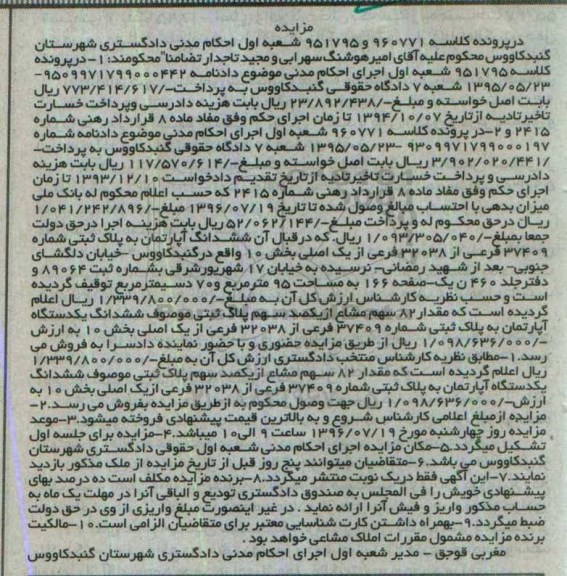 مزایده
درپرونده کلاسه ۹۶۰۷۷۱ و ۹۵۱۷۹۵ شعبه اول احکام مدنی دادگستری شهرستان
گنبدکاووس محکوم علیه آقای امیرهوشنگ سهرابی و مجید تاجدار تضامنا" محکومند: ۱-درپرونده
کلاسه ۹۵۱۷۹۵ شعبه اول اجرای احکام مدنی موضوع دادنامه ۹۵۰۹۹۷۱۷۹۹۰۰۰۴۴۲-
۱۳۹۵/۰۵/۲۳ شعبه ۷ دادگاه حقوقی گنبدکاووس به پرداخت-/۷۷۳/۴۱۴/۶۱۷ ریال
بابت اصل خواسته و مبلغ-/۲۳/۸۹۲/۴۳۸ ریال بابت هزینه دادرسی وپرداخت خسارت
تاخیرتادیه ازتاریخ ۱۳۹۴/۱۰/۰۷ تا زمان اجرای حکم وفق مفاد ماده ۸ قرارداد رهنی شماره
۲۴۱۵ و ۲-در پرونده کلاسه ۹۶۰۷۷۱ شعبه اول اجرای احکام مدنی موضوع دادنامه شماره
۹۳۰۹۹۷۱۷۹۹۰۰۰۱۹۷ -۱۳۹۵/۰۵/۲۳ شعبه ۷ دادگاه حقوقی گنبدکاووس به پرداخت-
/۳/۹۰۲/۰۲۰/۴۴۱ ریال بابت اصل خواسته و مبلغ-/۱۱۷/۵۷۰/۶۱۴ ریال بابت هزینه
دادرسی و پرداخت خسارت تاخیرتادیه ازتاریخ تقدیم دادخواست ۱۳۹۳/۱۲/۱۰ تا زمان
اجرای حکم وفق مفاد ماده ۸ قرارداد رهنی شماره ۲۴۱۵ که حسب اعلام محکوم له بانک ملی
میزان بدهی با احتساب مبالغ وصول شده تا تاریخ ۱۳۹۶/۰۷/۱۹ مبلغ-/۱/۰۴۱/۲۴۲/۸۹۶
ریال درحق محکوم له و پرداخت مبلغ-/۵۲/۰۶۲/۱۴۴ ریال بابت هزینه اجرا درحق دولت
جمعا بمبلغ-/۱/۰۹۳/۳۰۵/۰۴۰ ریال. که درقبال آن ششدانگ آپارتمان به پلاک ثبتی شماره
۳۷۴۰۹ فرعی از ۳۲۰۳۸ فرعی از یک اصلی بخش ۱۰ واقع درگنبدکاووس -خیابان دلگشای
جنوبی- بعد از شهید رمضانی- نرسیده به خیابان ۱۷ شهریورشرقی بشماره ثبت ۸۹۰۶۴ و
دفترجلد ۴۶۰ ن یک-صفحه ۱۶۶ به مساحت ۹۵ مترمربع و۷۰ دسیمترمربع توقیف گردیده
است و حسب نظریه کارشناس ارزش کل آن به مبلغ-/۱/۳۳۹/۸۰۰/۰۰۰ ریال اعلام
گردیده است که مقدار ۸۲ سهم مشاع ازیکصد سهم پلاک ثبتی موصوف ششدانگ یکدستگاه
آپارتمان به پلاک ثبتی شماره ۳۷۴۰۹ فرعی از ۳۲۰۳۸ فرعی از یک اصلی بخش ۱۰ به ارزش
-/۱/۰۹۸/۶۳۶/۰۰۰ ریال از طریق مزایده حضوری و با حضور نماینده دادسرا به فروش می
رسد.۱-مطابق نظریه کارشناس منتخب دادگستری ارزش کل آن به مبلغ-/۱/۳۳۹/۸۰۰/۰۰۰
ریال اعلام گردیده است که مقدار ۸۲ سهم مشاع ازیکصد سهم پلاک ثبتی موصوف ششدانگ
یکدستگاه آپارتمان به پلاک ثبتی شماره ۳۷۴۰۹ فرعی از ۳۲۰۳۸ فرعی ازیک اصلی بخش ۱۰ به
ارزش-/۱/۰۹۸/۶۳۶/۰۰۰ ریال جهت وصول محکوم به ازطریق مزایده بفروش می رسد.۲-
مزایده ازمبلغ اعلامی کارشناس شروع و به بالاترین قیمت پیشنهادی فروخته میشود.۳-موعد
مزایده روز چهارشنبه مورخ ۱۳۹۶/۰۷/۱۹ ساعت ۹ الی۱۰ میباشد.۴-مزایده برای جلسه اول
تشکیل میگردد.۵-مکان مزایده اجرای احکام مدنی شعبه اول حقوقی دادگستری شهرستان
گنبدکاووس می باشد.۶-متقاضیان میتوانند پنج روز قبل از تاریخ مزایده از ملک مذکور بازدید
نمایند.۷-این آگهی فقط دریک نوبت منتشر میگردد.۸-برنده مزایده مکلف است ده درصد بهای
پیشنهادی خویش را فی المجلس به صندوق دادگستری تودیع و الباقی آنرا در مهلت یک ماه به
حساب مذکور واریز و فیش آنرا ارائه نماید . در غیر اینصورت مبلغ واریزی از وی در حق دولت
ضبط میگردد.۹-بهمراه داشتن کارت شناسایی معتبر برای متقاضیان الزامی است.۱۰-مالکیت
برنده مزایده مشمول مقررات املاک مشاعی خواهد بود .
مغربی قوجق - مدیر شعبه اول اجرای احکام مدنی دادگستری شهرستان گنبدکاووس